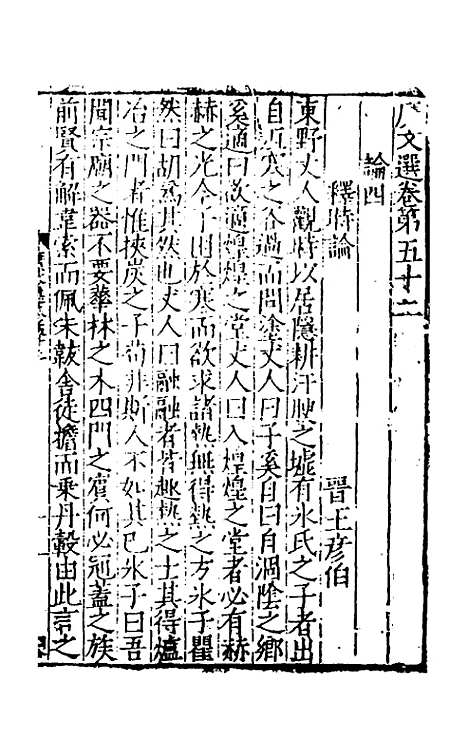 廣文選卷第五十二
論四
釋時論
晉王彥伯
東野丈人觀時以居隱耕汙腴之墟有冰氏之子者出
自沍寒之谷過而問塗丈人曰子奚自曰自涸陰之鄉
奚適曰欲適煌煌之堂丈人曰入煌煌之堂者必有赫
赫之光今子困於寒而欲求諸熱無得熱之方冰子瞿
然曰胡爲其然也丈人曰融融者皆趣熱之士其得爐
冶之門者惟挾炭之子苟非斯人不如其已冰子曰吾
聞宗廟之器不要華林之木四門之賓何必冠蓋之族
前賢有解韋索而佩朱韍舍徒擔而乘丹轂由此言之